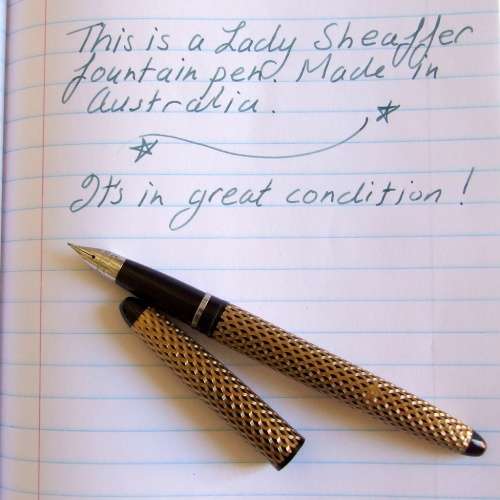 This is a Lady Sheaffer
fountain pen. Made in
Australia.
It's in great condition!